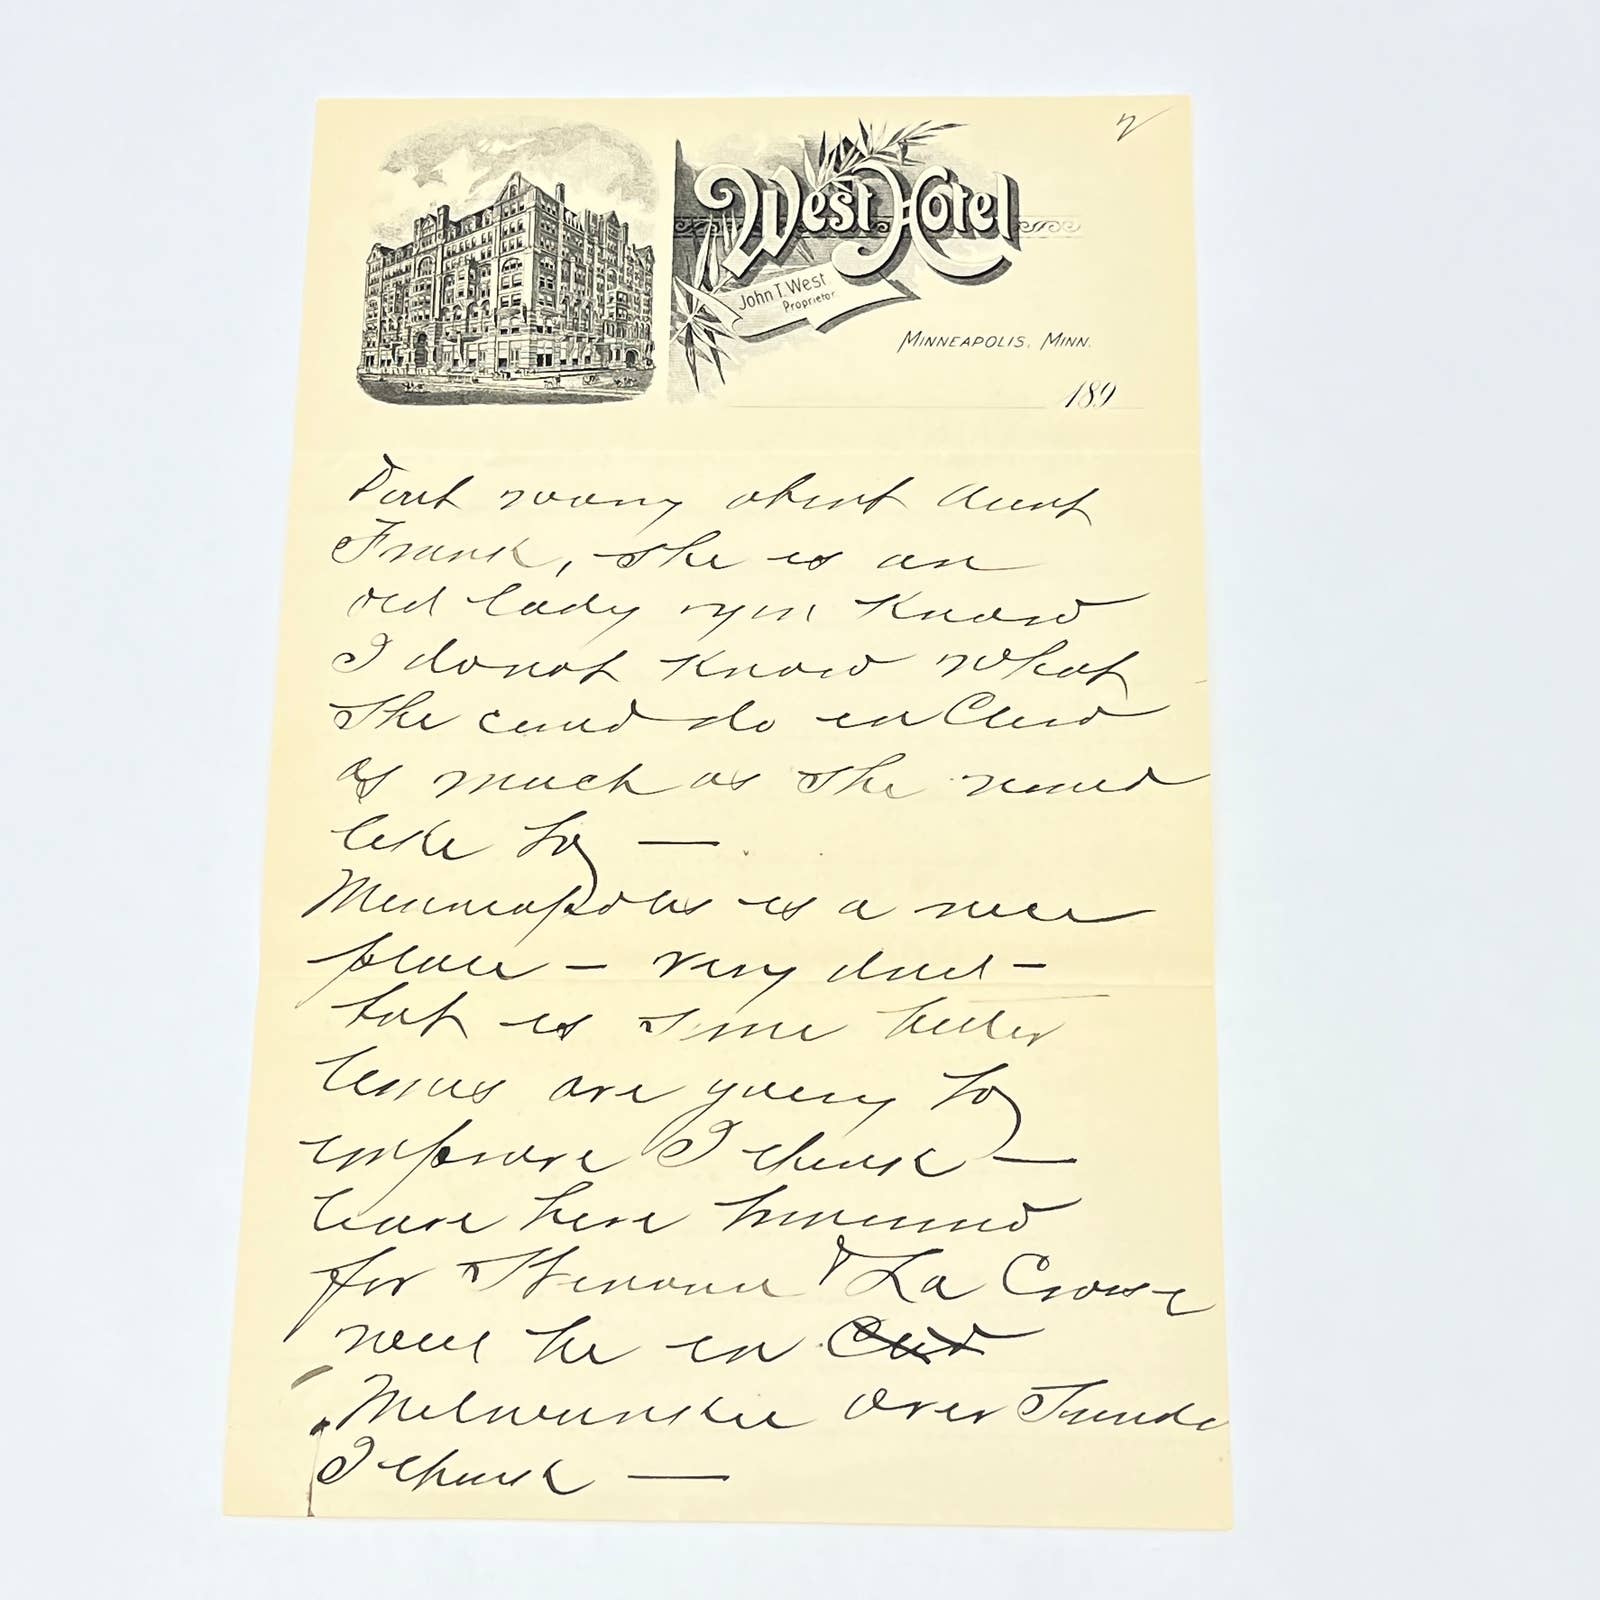 2
West Hotel
John T. West
Proprietor
Minneapolis, Minn.
189
Dont worry about Aunt
Frank, she is an
old lady & you know
I do not know what
She could do in Clevd
as much as she would
like to —
Minneapolis is a nice
place — very dull —
but is some better
times are going to
improve I think —
leave here tomorrow
for Winona & La Crosse
will be in Clevd
Milwaukee over Sunday
I think —